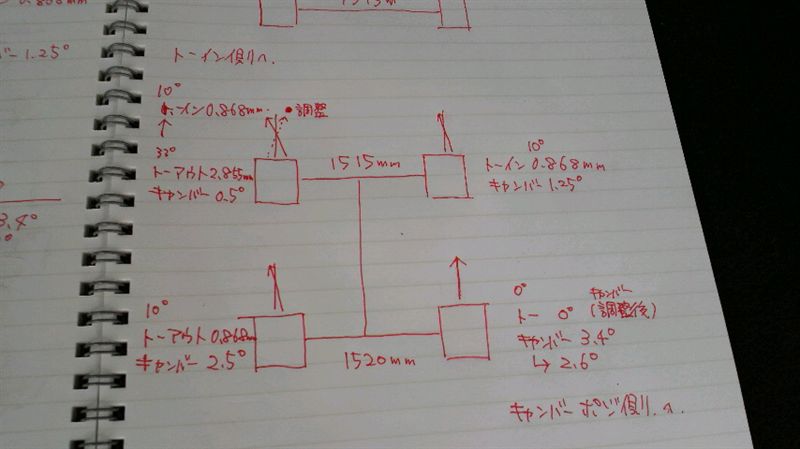 1.25°
3.4°
トーイン側りへ.
10°
トーイン0.868mm.
●調整
33°
トーアウト2.855mm
キャンバー0.5°
1515mm
10°
トーイン0.868mm
キャンバー1.25°
10°
トーアウト0.868m
キャンバー2.5°
1520mm
0°
トー 0°
キャンバー
(調整後)
キャンバー 3.4°
↳2.6°
キャンバー ポジ側りへ.